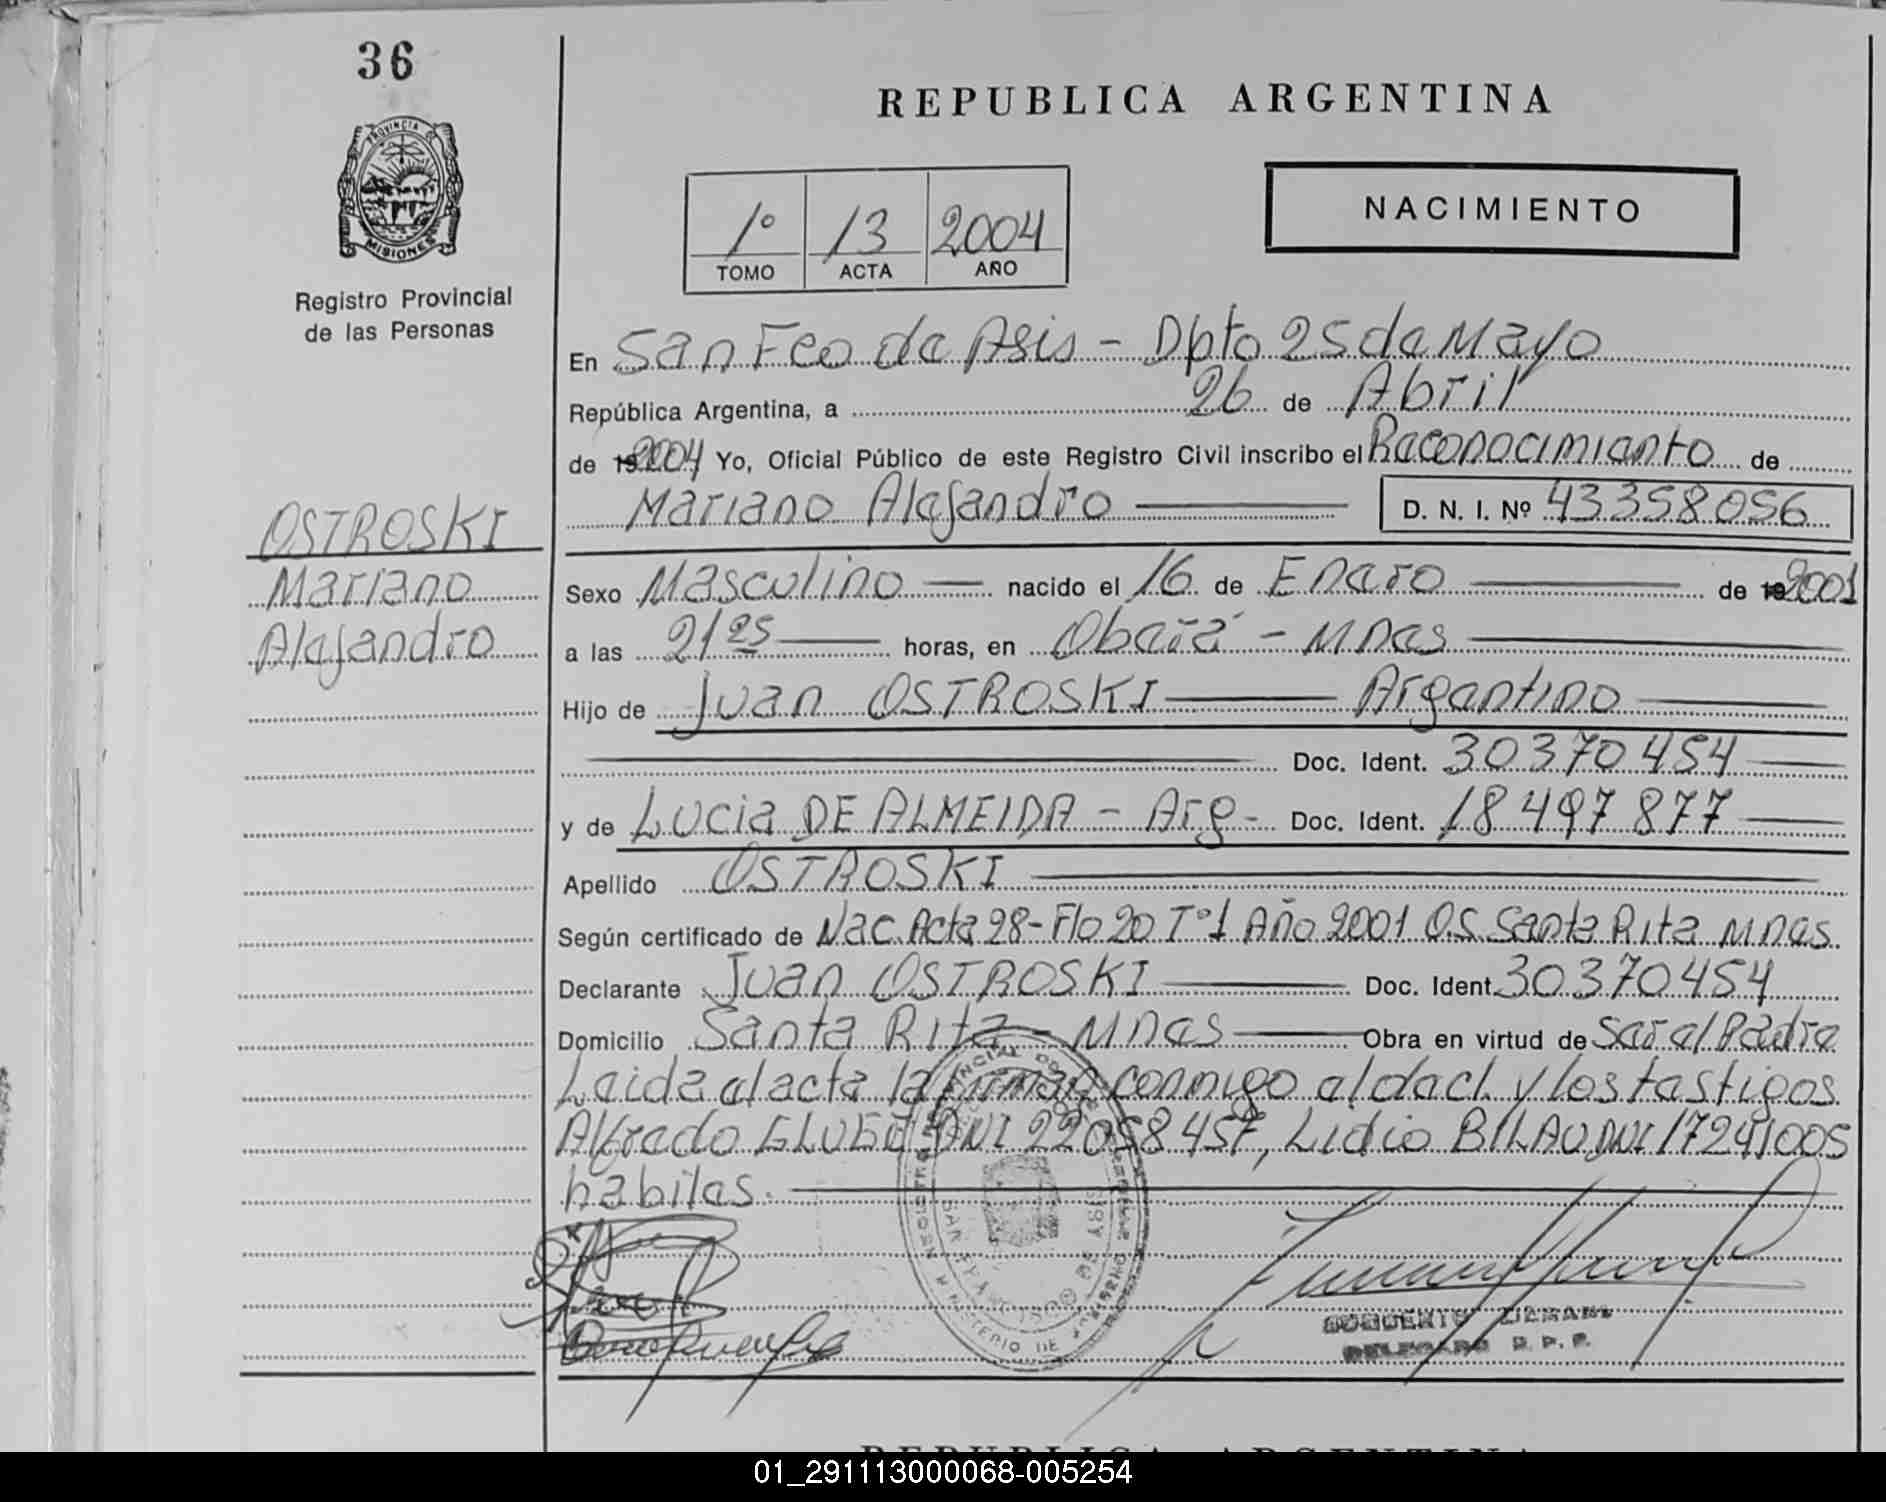 36
REPUBLICA ARGENTINA
PROVINCIA DE MISIONES
Registro Provincial
de las Personas
1º 13 2004
TOMO ACTA AÑO
NACIMIENTO
En San Fco de Asis - Dpto 25 de Mayo
República Argentina, a 26 de Abril
de 2004 Yo, Oficial Público de este Registro Civil inscribo el Reconocimiento de
Mariano Alejandro D. N. I. Nº 43358056
OSTROSKI
Mariano
Alejandro
Sexo Masculino nacido el 16 de Enero de 2001
a las 21 25 horas, en Oberá - Mnes
Hijo de Juan OSTROSKI Argentino
Doc. Ident. 30370454
y de Lucia DE ALMEIDA - Arg - Doc. Ident. 18497877
Apellido OSTROSKI
Según certificado de Nac. Acta 28 - Flo 20 Tº 1 Año 2001 O.S. Santa Rita Mnes.
Declarante Juan OSTROSKI Doc. Ident. 30370454
Domicilio Santa Rita - Mnes Obra en virtud de Ser el Padre
Leida el acta la firman conmigo el decl. y los testigos
Alfredo DNI 22058457, Lidio BILAO DNI 17241005
habiles.
SAN FRANCISCO DE ASIS
MINISTERIO DE GOBIERNO
DELEGADO R. P. P.
REPUBLICA ARGENTINA
01_291113000068-005254